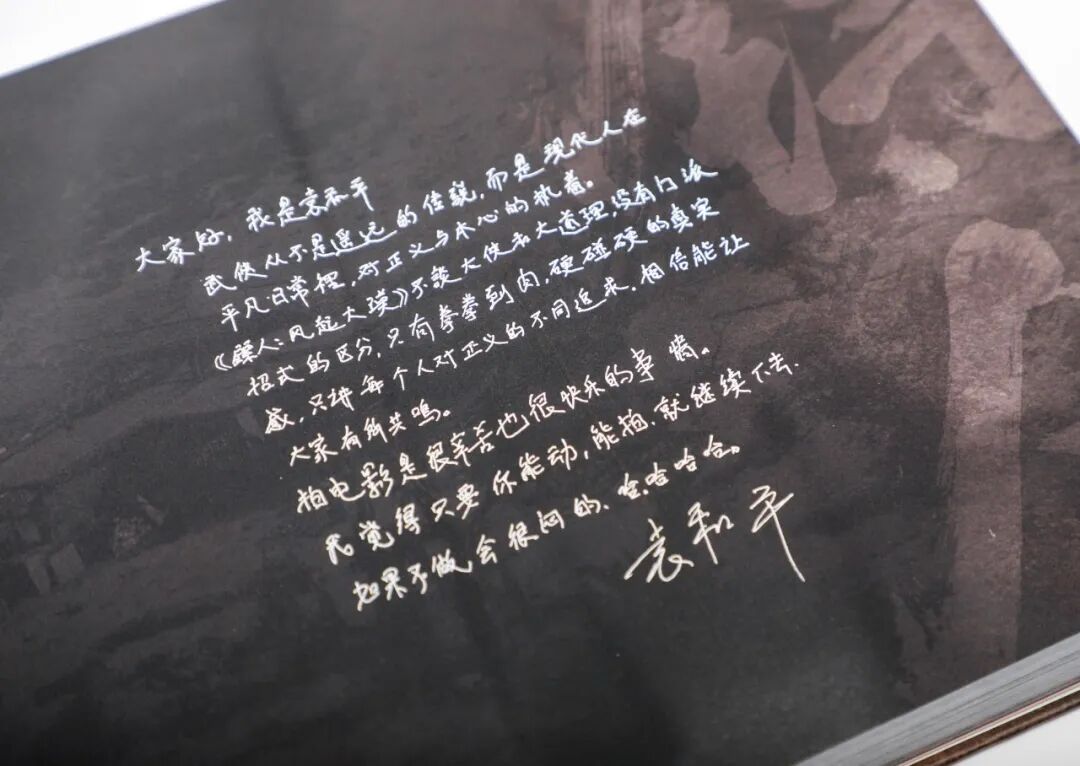 大家好,我是袁和平
武侠从不是遥远的传说,而是现代人在
平凡日常里,对正义与本心的执着。
《镖人:风起大漠》不谈大侠和大道理,没有门派
招式的区分,只有拳拳到肉,硬碰硬的真实
感,只讲每个人对正义的不同追求,相信能让
大家有所共鸣。
拍电影是很辛苦也很快乐的事情。
我觉得只要你能动,能拍,就继续下去.
如果不做会很闷的、哈哈哈哈。
袁和平